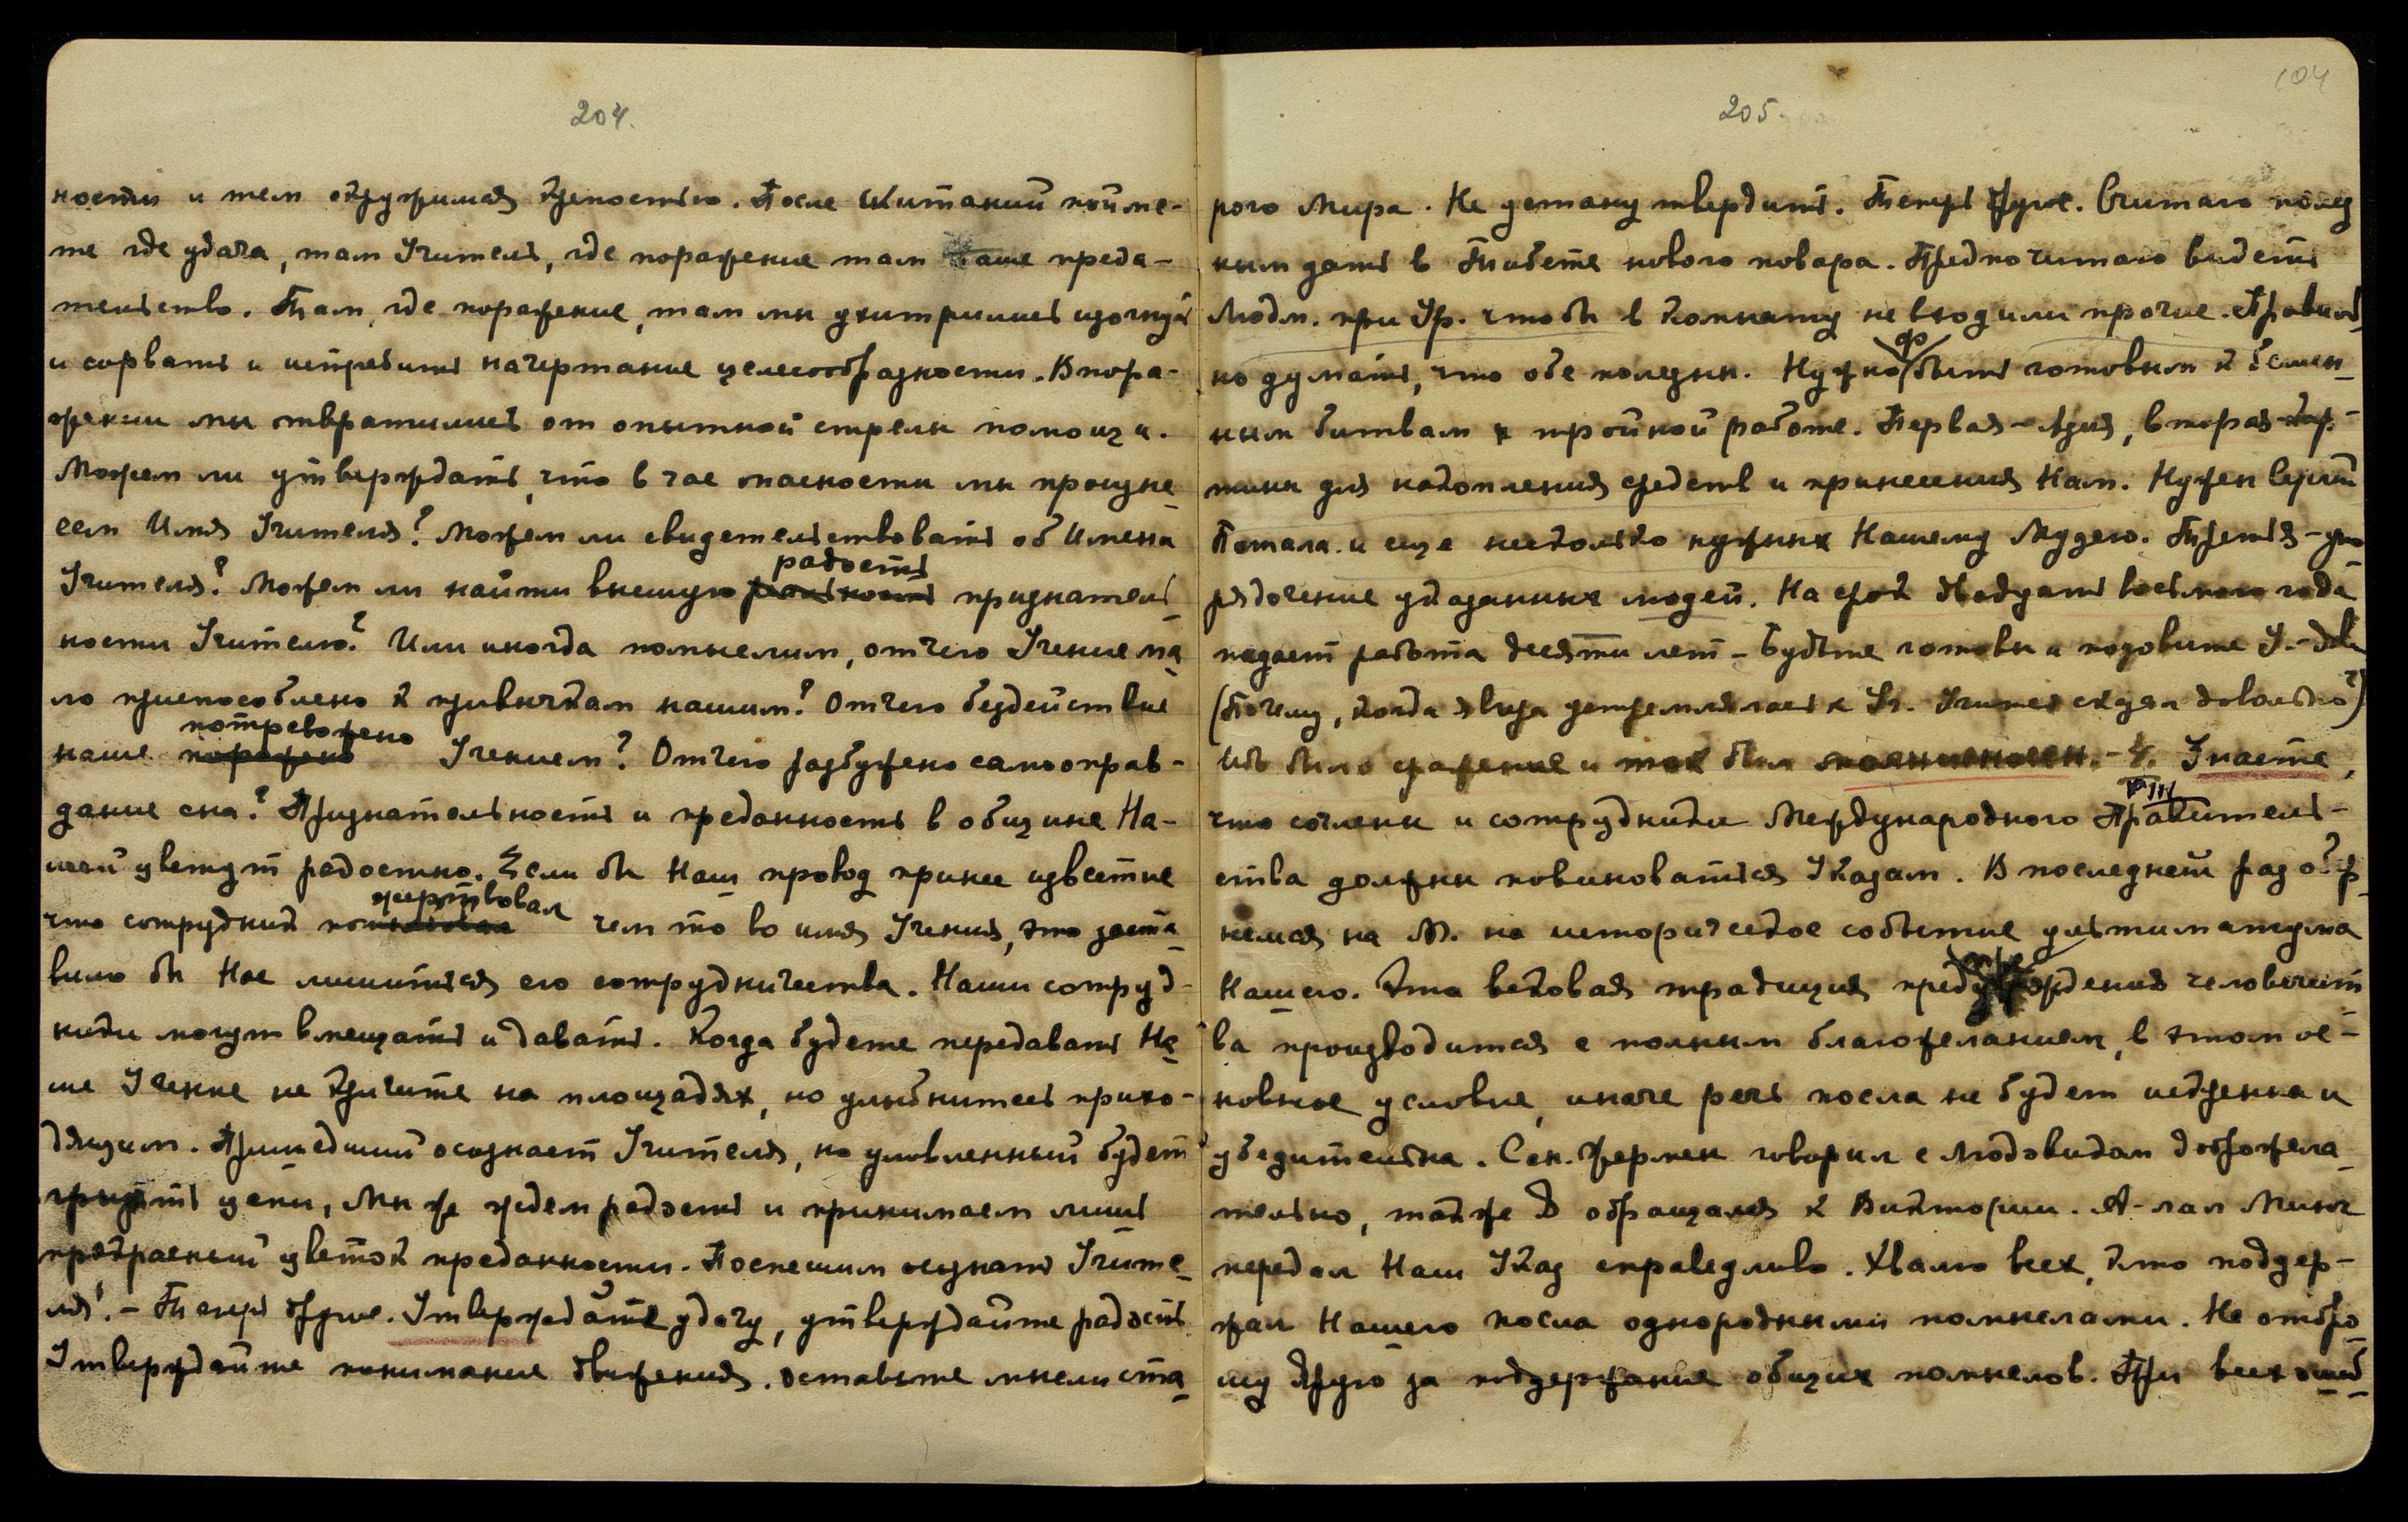 204.
ности и тем окружимся крепостью. После скитаний пойме-
те где удача, там Учитель, где поражение там наше преда-
тельство. Там, где поражение, там мы ухитрились
и сорвать и истребить начертание целесообразности. В пора-
жении мы отвратились от опытной стрелы помощи.
Можем ли утверждать, что в час опасности мы произне
сем Имя Учителя? Можем ли свидетельствовать об Имени
радость
Учителя? Можем ли найти высшую признатель
ности Учителю? Или иногда помыслим, отчего Учение ма
ло приспособлено к привычкам нашим? Отчего бездействие
потревожено
наше поражено Учением? Отчего разбужено самооправ-
дание сна? Признательность и преданность в общине На-
шей цветут радостно. Если бы Наш провод принес известие
жертвовал
что сотрудник чем то во имя Учения, это заста
вило бы Нас лишиться его сотрудничества. Наши сотруд-
ники могут вмещать и давать. Когда будете передавать На
ше Учение не кричите на площадях, но улыбнитесь прихо-
дящим. Пришедший осознает Учителя, но уловленный будет
грызть цепи, Мы же ждем радость и принимаем лишь
прекрасный цветок преданности. Поспешим осознать Учите
ля! - Теперь другие. Утверждайте удачу, утверждайте радость
Утверждайте понимание движения. Оставьте мысли ста
104
205.
рого Мира. Не устану твердить. Теперь другое. Считаю полез
ным дать в Тибете нового повара. Предпочитаю видеть
Людм. при Ур. чтобы в комнату не входили прочие. Правиль
но думать, что обе полезны. Нужно быть готовым к
ным битвам к тройной работе. Первая - Азия, вторая
тины для накопления средств и принесения Нам. Нужен
Потала и еще несколько нужных Нашему Музею. Третья - упо
рядочение указанных людей. На срок двадцать восьмого года
падает работа десяти лет - Будьте готовы и позовите У. -
(Почему, когда вчера устремлялась к Уч. Учитель сказал довольно?)
Ибо было сражение и ток был молниеносен. - Ч. Знаете,
что сочлены и сотрудники Международного Правитель-
ства должны повиноваться Указам. В последней раз обер
немся на М. на историческое событие ультиматума
Нашего. Эта вековая традиция предупреждения человечест
ва производится с полным благожеланием, в этом ос-
новное условие, иначе речь посла не будет искренна и
убедительна. Сен. Жермен говорил с Людовиком доброжела
тельно, также Я обращался к Виктории. А-лал Минг
передал Наш Указ справедливо. Хвалю всех, кто поддер-
жал Нашего посла однородными помыслами. Не отбро
шу Другю за поддержание общих помыслов. При всех ошиб